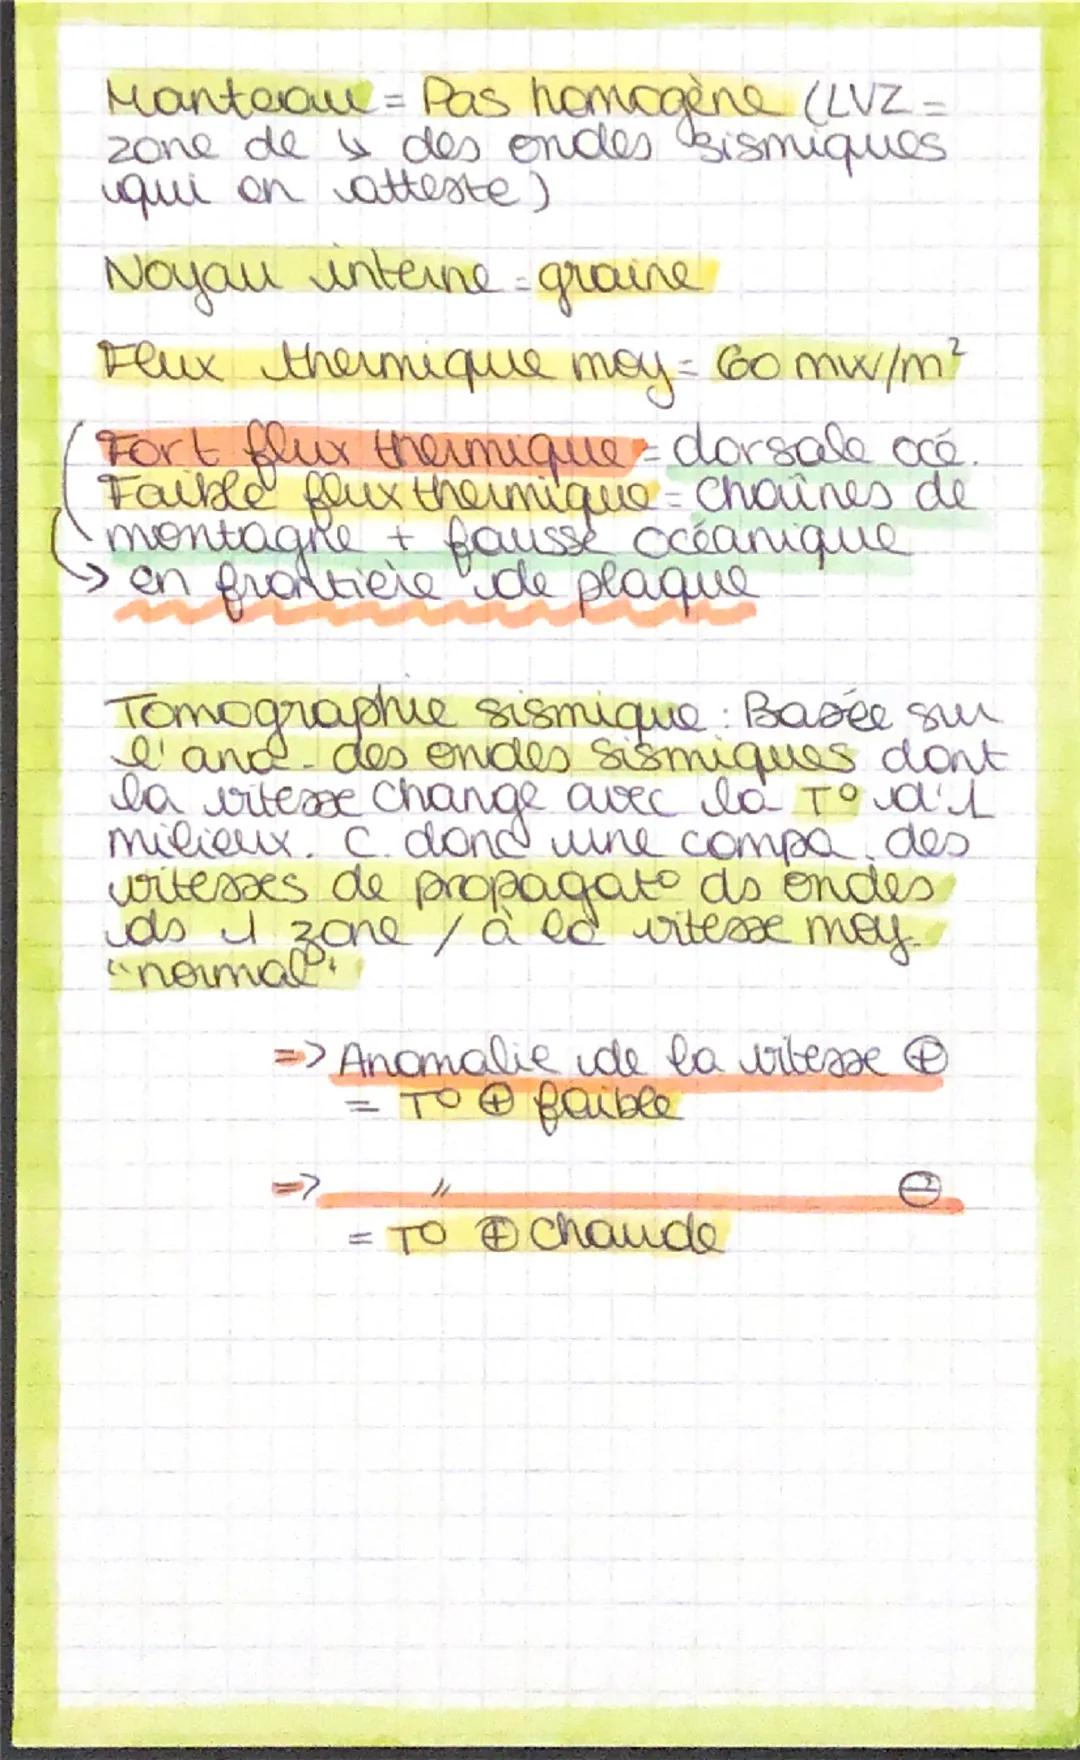 Manteau = Pas homogène (LVZ =
zone de ↘ des ondes sismiques
qui en atteste)
Noyau interne = graine
Flux thermique moy = 60 mW/m²
Fort flux thermique = dorsale océ.
Faible flux thermique = chaînes de
montagne + fausse océanique
→ en frontière de plaque
Tomographie sismique : Basée sur
l'ana. des ondes sismiques dont
la vitesse change avec la T° d'1
milieux. C. donc une compa. des
vitesses de propagat° ds ondes
ds 1 zone / à la vitesse moy.
"normal"
=> Anomalie de la vitesse ⊕
= T° ⊕ faible
=> " ⊖
= T° ⊕ chaude